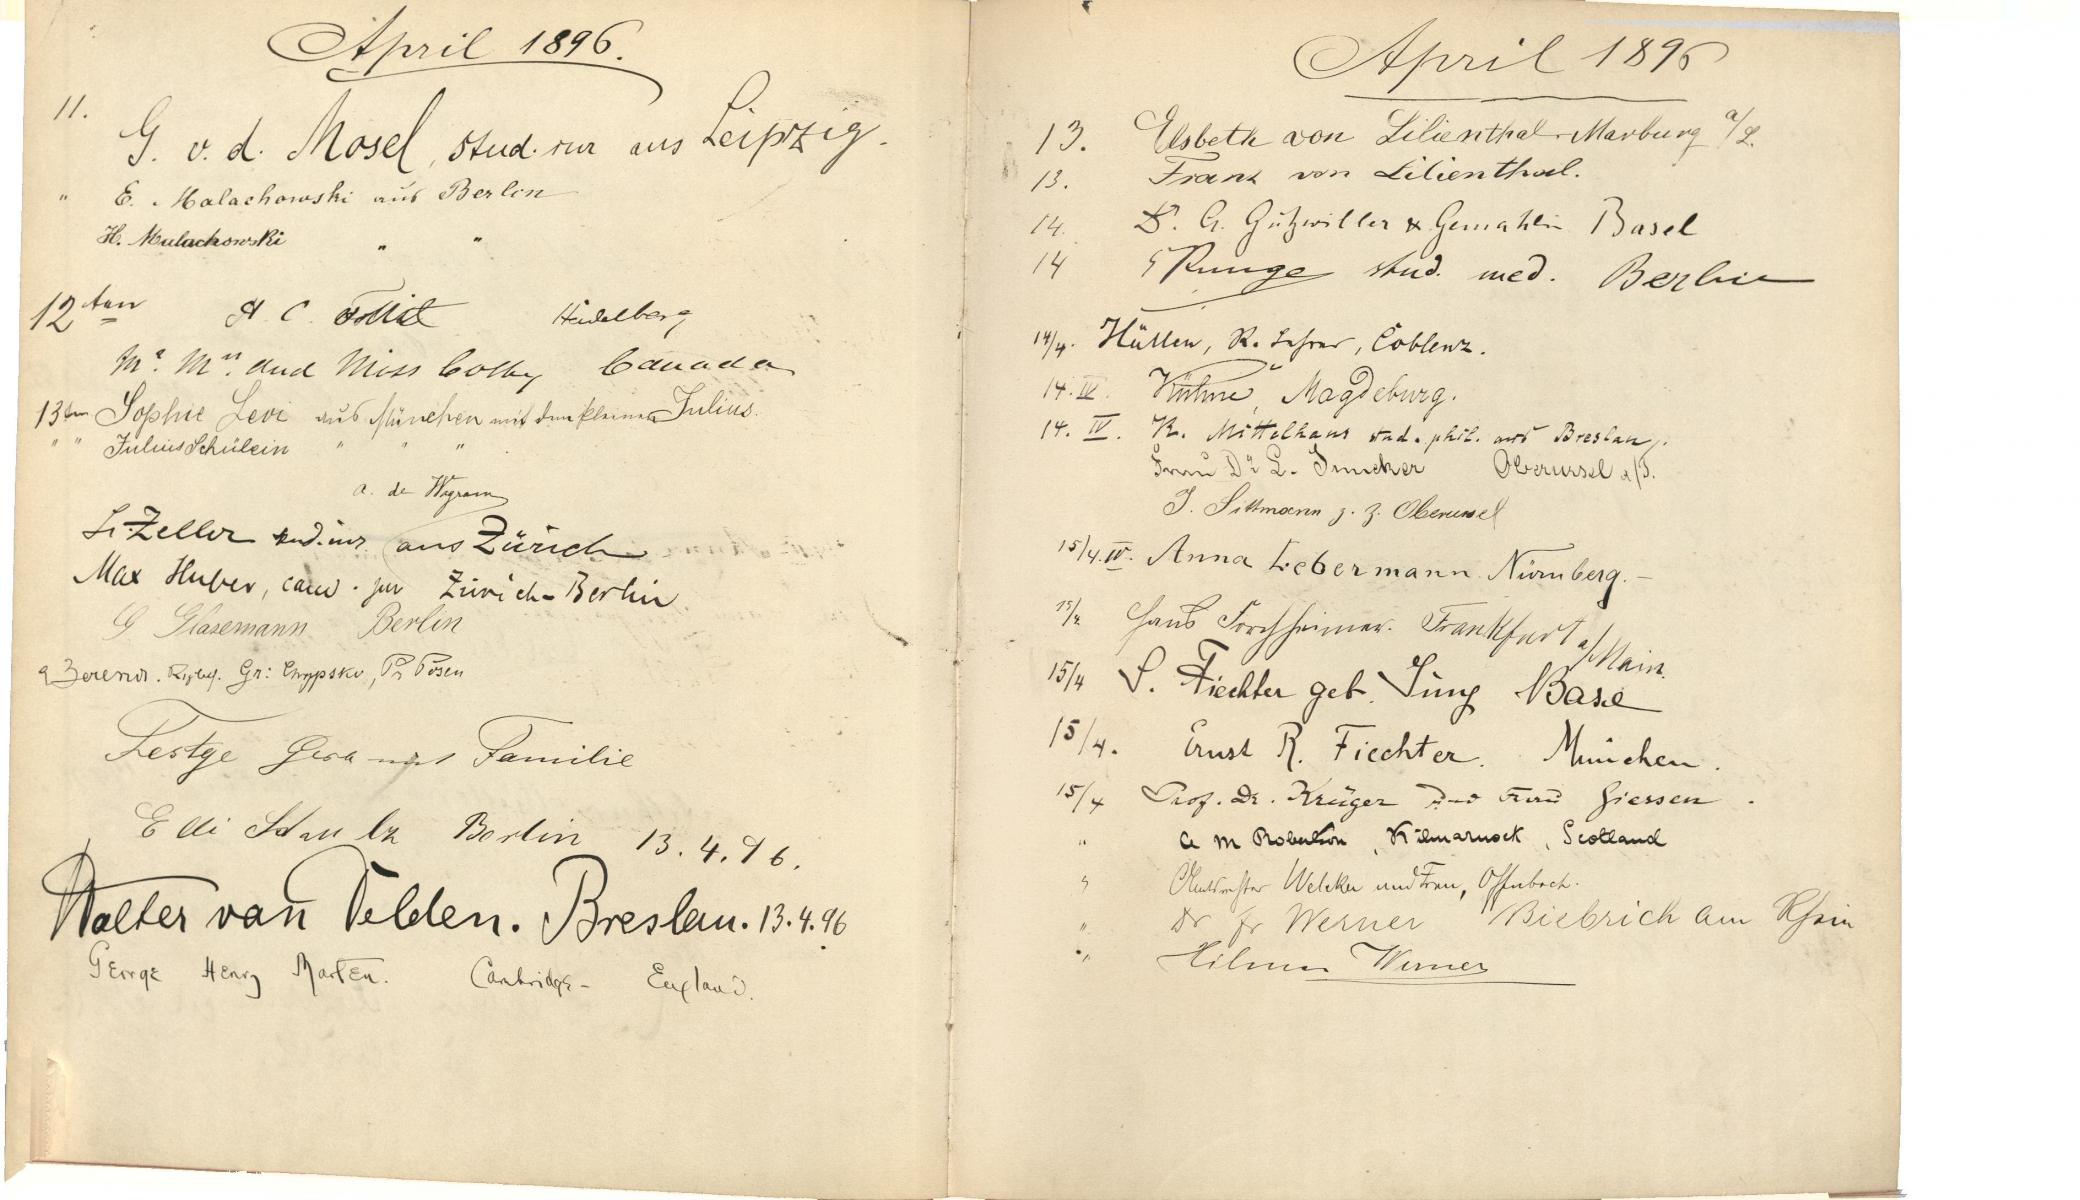 April 1896.
11. G. v. d. Mosel, stud. iur aus Leipzig.
" E. Malachowski aus Berlin
H. Malachowski " "
12ten A C Heidelberg
Mr. Mrs. and Miss Colby Canada
13ten Sophie Levi aus München mit dem kleinen Julius.
" " Julius Schülein " " "
a. de Wagram
Zeller stud. iur. aus Zürich
Max Huber, cand. jur Zürich-Berlin
G Glasemann Berlin
Posen
Familie
Berlin 13.4.96.
Walter van Delden. Breslau. 13.4.96
George Henry Marten. Cambridge - England.
April 1896
13. Elsbeth von Lilienthal. Marburg a/L.
13. Franz von Lilienthal.
14. Dr. G. Gutzwiller & Gemahlin Basel
14 Runge stud. med. Berlin
14/4. Hüllen, K. Lehrer, Coblenz.
14. IV. Kühne, Magdeburg.
14. IV. K. Mittelhaus stud. phil. aus Breslau.
Frau Dr L. Oberursel a/T.
J. Sittmann z. Z. Oberursel
15/4. IV. Anna Liebermann Nürnberg. -
Hans Forchheimer. Frankfurt a/Main.
15/4 S. Fiechter geb. Jung Basel
15/4. Ernst R. Fiechter. München.
15/4 Prof. Dr. Krüger und Frau Giessen.
" A M Robertson, Kilmarnock, Scotland
" Amtsrichter Welcker und Frau, Offenbach.
" Dr fr Werner Biebrich am Rhein
" Werner